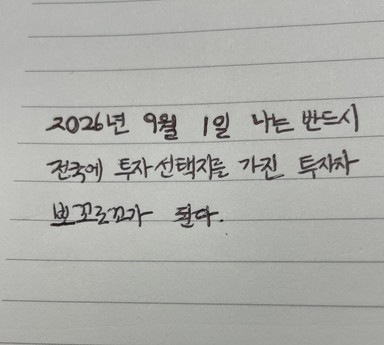 2026년 9월 1일 나는 반드시
전국에 투자선택지를 가진 투자자
뽀꼬로꼬가 된다.